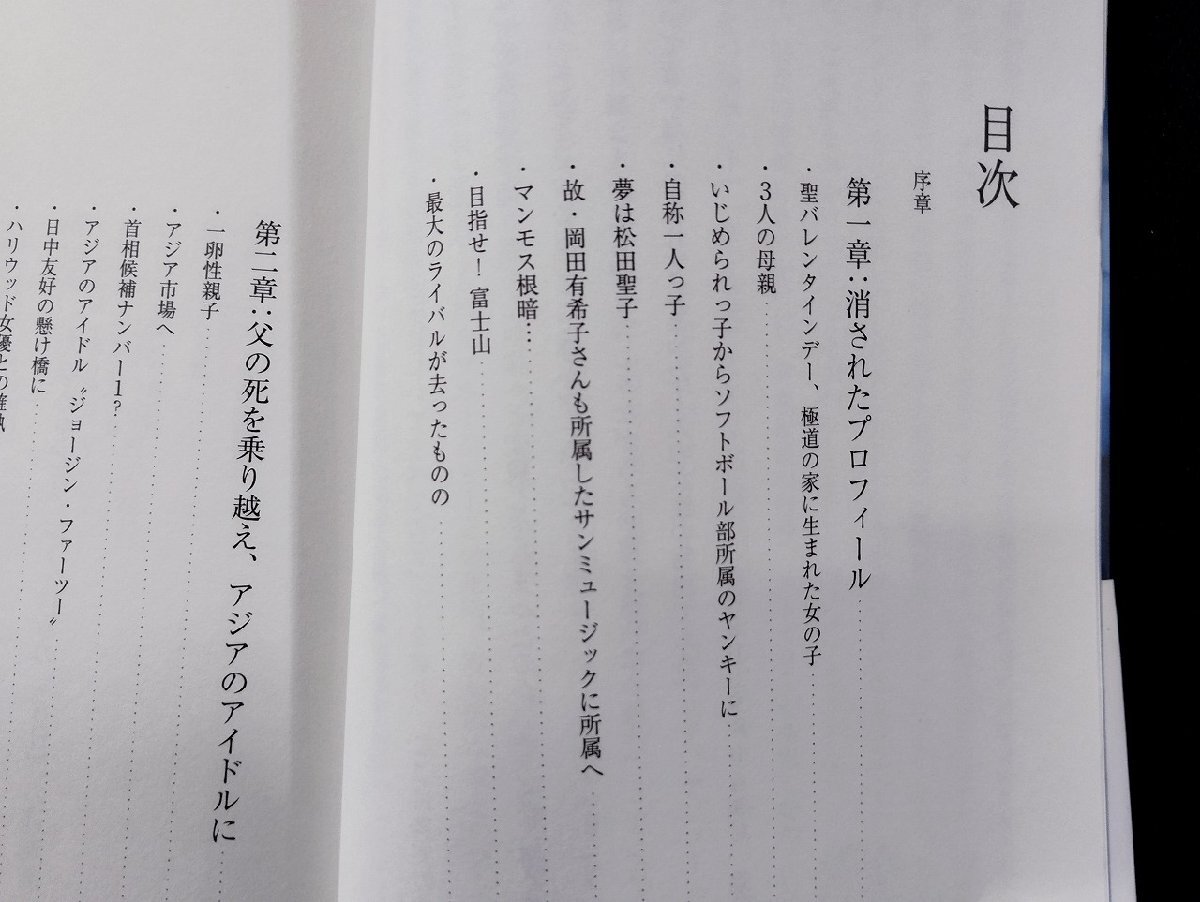 目次
序章
第一章:消されたプロフィール
・聖バレンタインデー、極道の家に生まれた女の子
・3人の母親
・いじめられっ子からソフトボール部所属のヤンキーに
・自称一人っ子
・夢は松田聖子
・故・岡田有希子さんも所属したサンミュージックに所属へ
・マンモス根暗…
・目指せ!富士山
・最大のライバルが去ったものの
第二章:父の死を乗り越え、アジアのアイドルに
・一卵性親子
・アジア市場へ
・首相候補ナンバー1?
・アジアのアイドル〝ジョージン・ファーツー〟
・日中友好の懸け橋に
・ハリウッド女優との確執